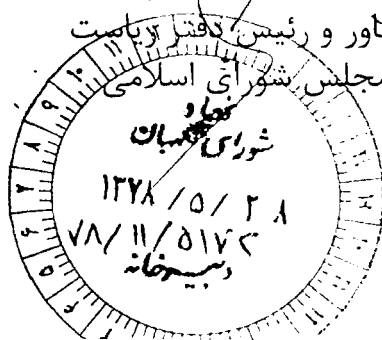 اور و رئیس دفتر ریاست
مجلس شورای اسلامی
شورای نگهبان
۱۳۷۸/۵/۲۸
۷۸/۱۱/۵۱۷۲
دبیرخانه
4 5 6 7 8 9 10 11 12